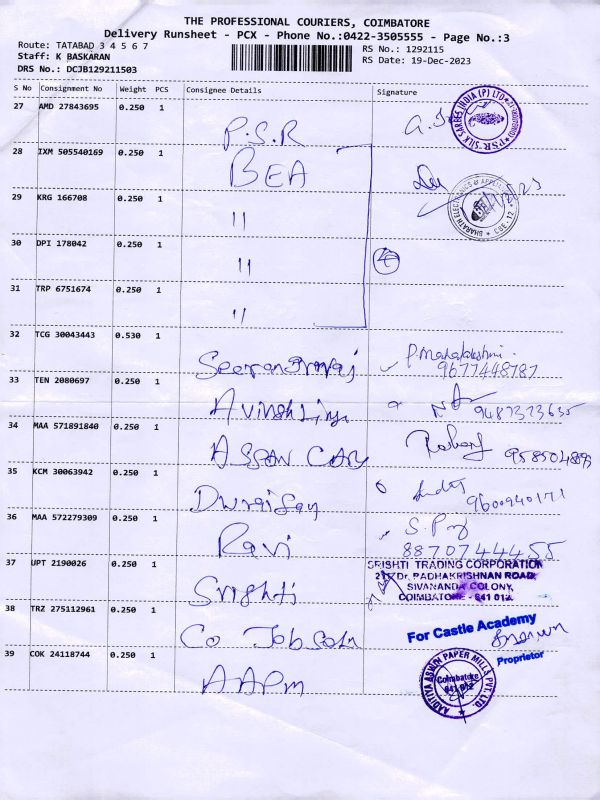 THE PROFESSIONAL COURIERS, COIMBATORE
Delivery Runsheet - PCX - Phone No.:0422-3505555 - Page No.:3
Route: TATABAD 3 4 5 6 7
RS No.: 1292115
Staff: K BASKARAN
RS Date: 19-Dec-2023
DRS No.: DCJB129211503
S No Consignment No Weight PCS Consignee Details Signature
27 AMD 27843695 0.250 1
P.S.R
PSR SILK SAREES INDIA (P) LTD
28 IXM 505540169 0.250 1
BEA
BHARATH ELECTRONICS & APPL
CBE-12
29 KRG 166708 0.250 1
11
30 DPI 178042 0.250 1
11
4
31 TRP 6751674 0.250 1
11
32 TCG 30043443 0.530 1
P. Mahalakshmi.
9677448787
33 TEN 2080697 0.250 1
9487373635
34 MAA 571891840 0.250 1
35 KCM 30063942 0.250 1
9600940171
36 MAA 572279309 0.250 1
Ravi
8870744455
37 UPT 2190026 0.250 1
Srishti
SRISHTI TRADING CORPORATION
RADHAKRISHNAN ROAD,
SIVANANDA COLONY,
COIMBATORE - 641 012.
38 TRZ 275112961 0.250 1
For Castle Academy
Proprietor
39 COK 24118744 0.250 1
AAPM
AADITIYA ASWIN PAPER MILLS PVT. LTD.
Coimbatore
641 012